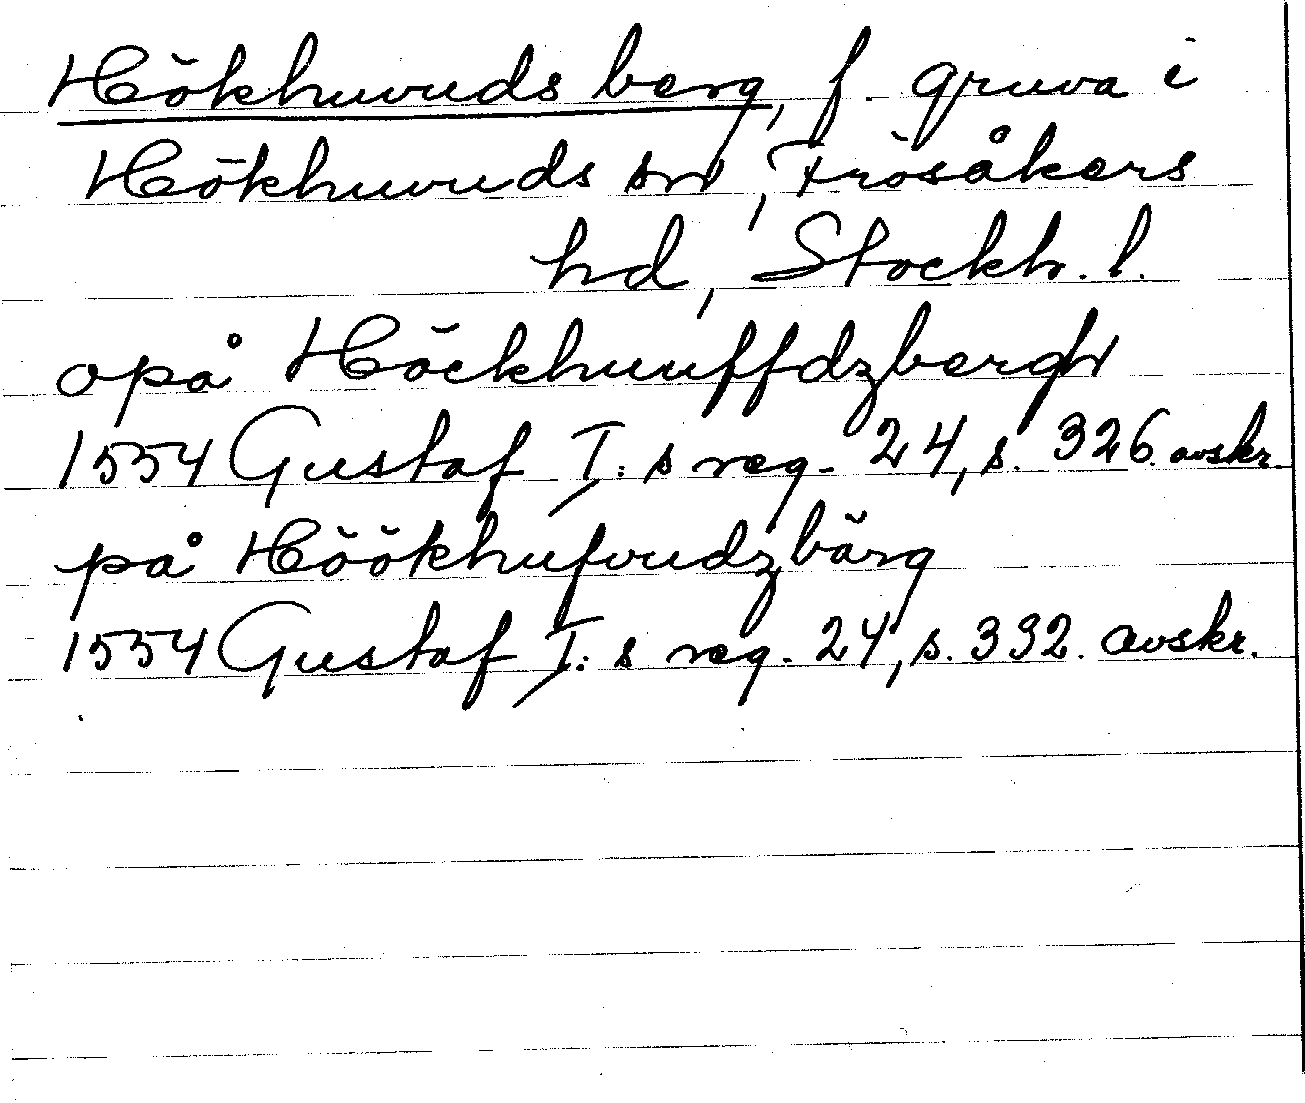 Hökhuvuds berg, f. gruva i
Hökhuvuds sn, Frösåkers
hd, Stockh. l.
opå Höckhuuffdzbergh
1554 Gustaf I:s reg. 24, s. 326. avskr.
på Höökhufvudzbärg
1554 Gustaf I:s reg. 24, s. 332. avskr.